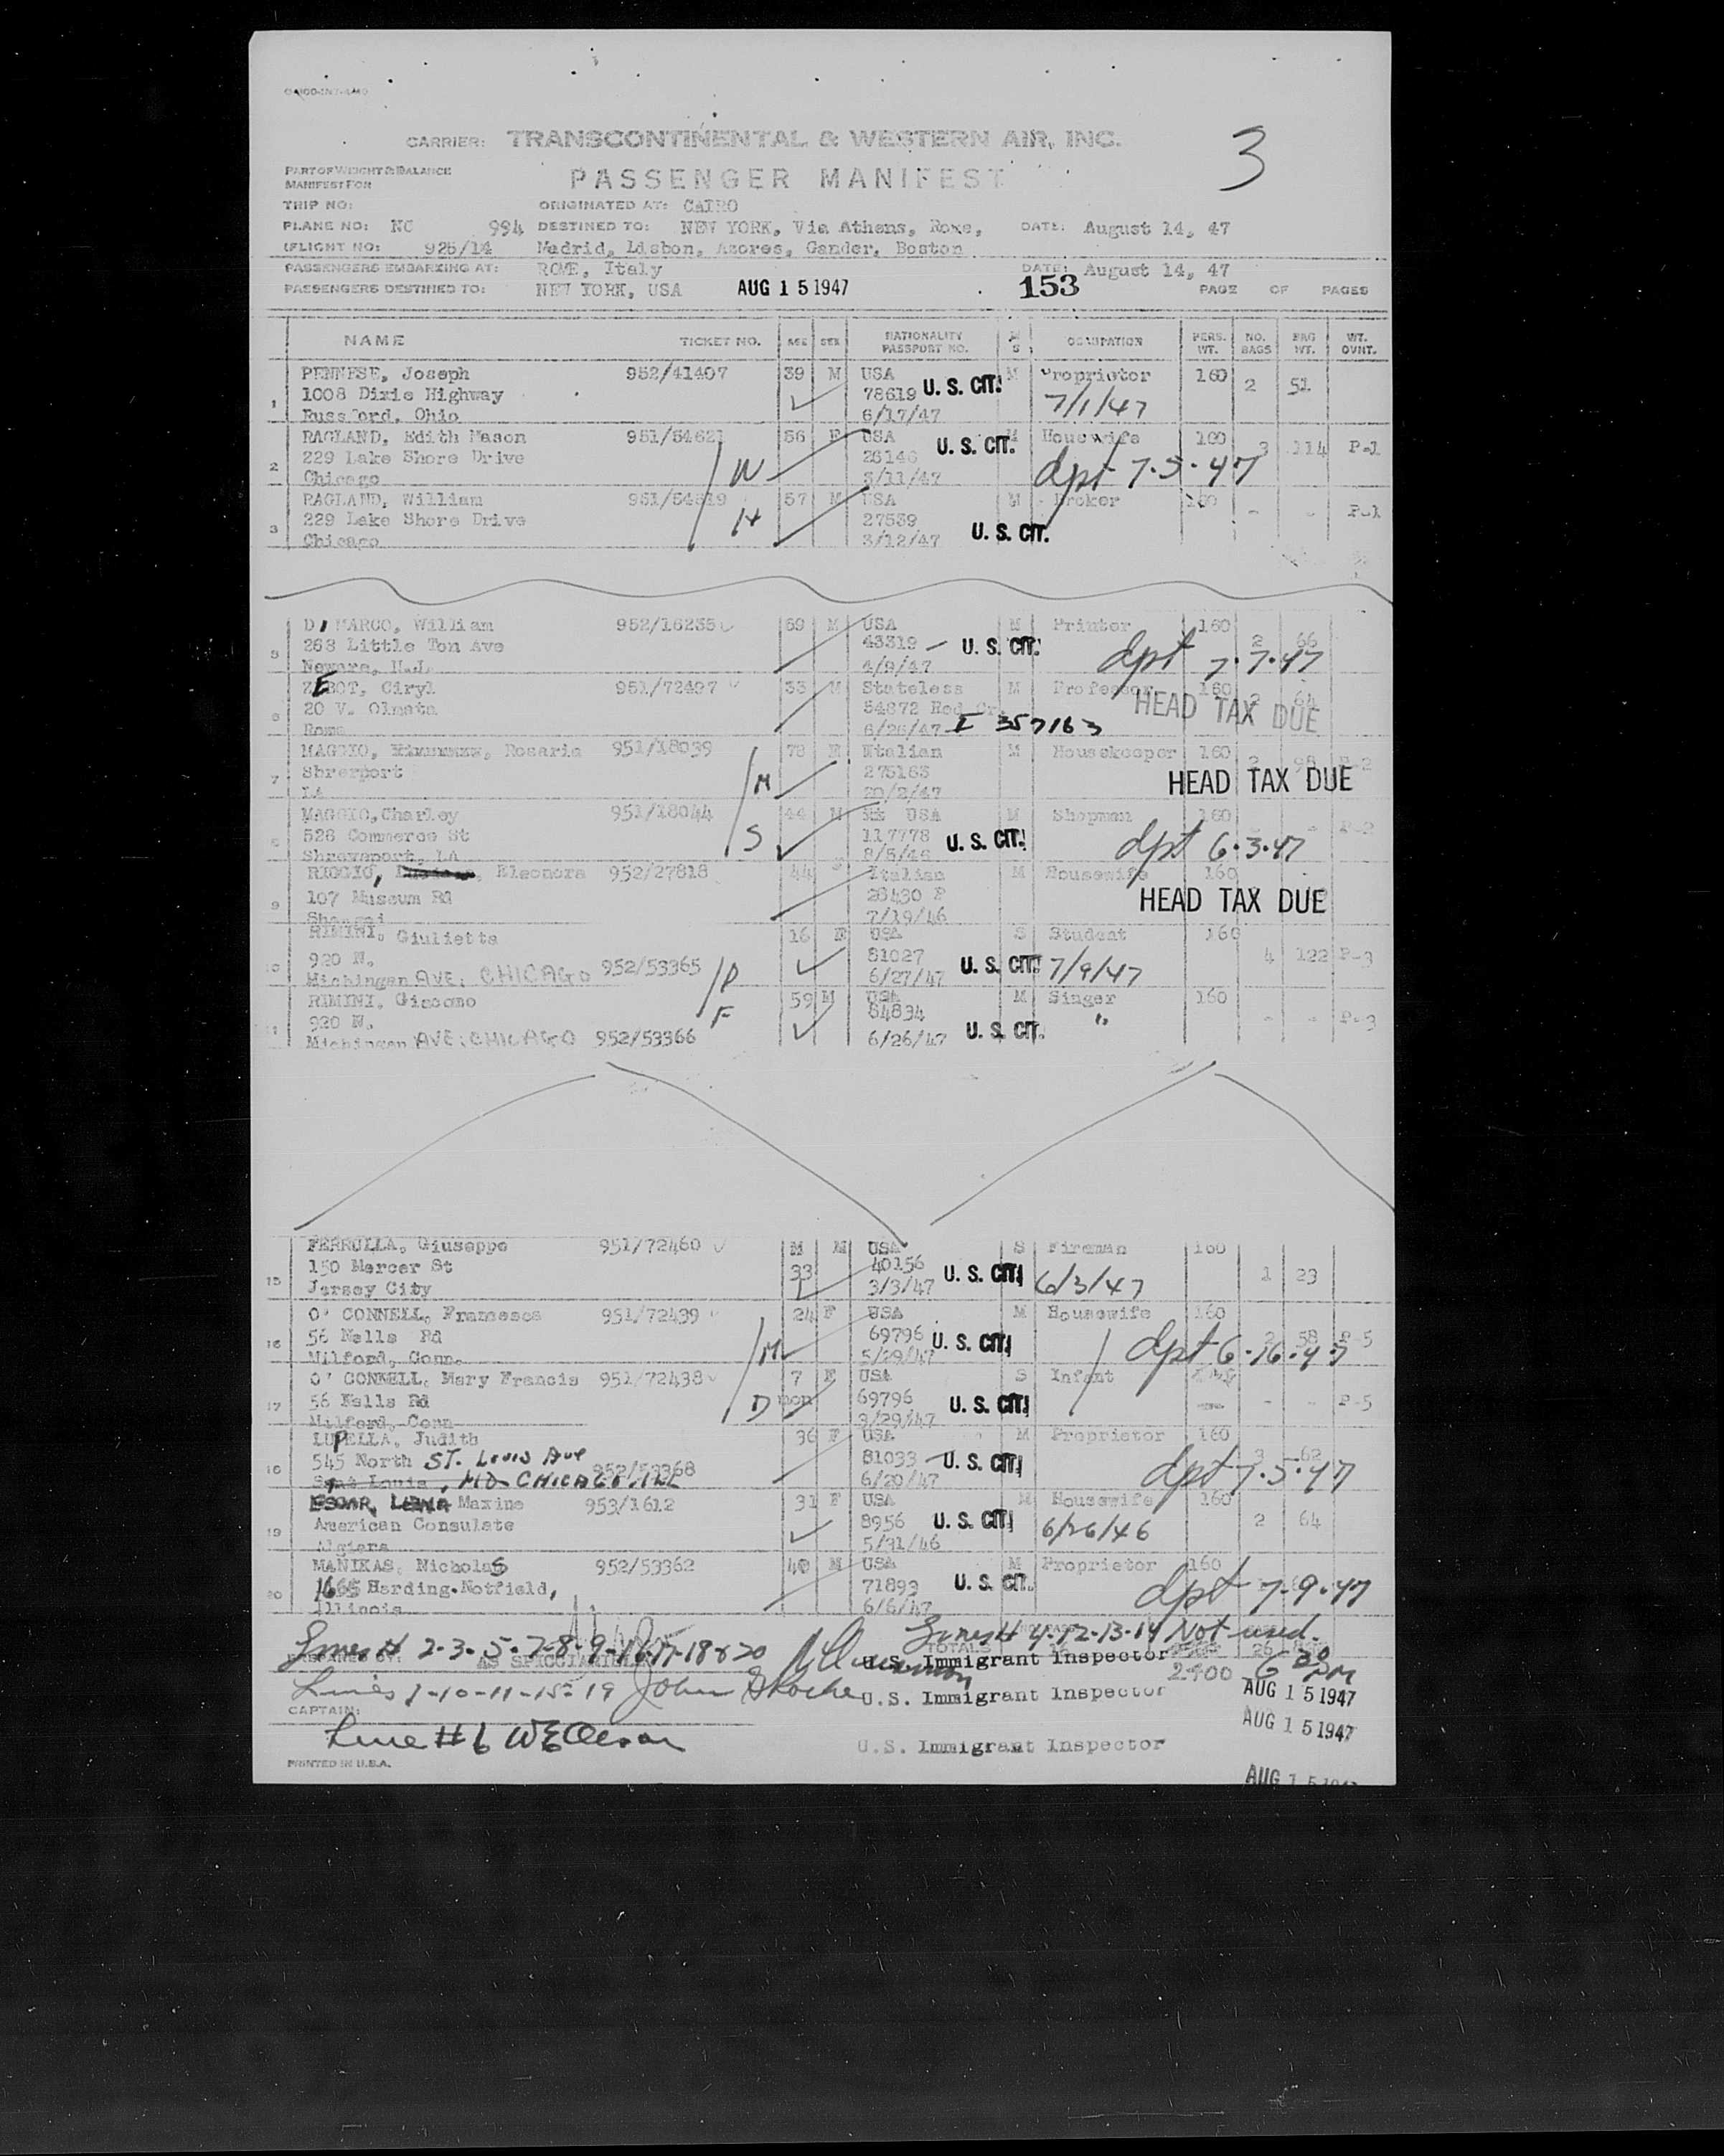 3
CARRIER: TRANSCONTINENTAL & WESTERN AIR, INC.
PART OF WEIGHT & BALANCE
MANIFEST FOR
PASSENGER MANIFEST
TRIP NO: ORIGINATED AT: CAIRO
PLANE NO: NC 994 DESTINED TO: NEW YORK, Via Athens, Rome, DATE: August 14, 47
FLIGHT NO: 925/14 Madrid, Lisbon, Azores, Gander, Boston
PASSENGERS EMBARKING AT: ROME, Italy DATE: August 14, 47
PASSENGERS DESTINED TO: NEW YORK, USA AUG 15 1947 153 PAGE OF PAGES
NAME TICKET NO. AGE SEX NATIONALITY PASSPORT NO. M S OCCUPATION PERS. WT. NO. BAGS BAG WT. WT. OVHT.
PENNESE, Joseph 952/41407 39 M USA M Proprietor 160 2 51
1008 Dixie Highway 78619 U. S. CIT. 7/1/47
1 Russford, Ohio 6/17/47
RAGLAND, Edith Mason 951/5462 56 F USA M Housewife 160 3 114 P-1
229 Lake Shore Drive W 26146 U. S. CIT. dpt 7-5-47
2 Chicago 3/11/47
RAGLAND, William 951/54619 57 M USA M Broker 160 - - P-1
229 Lake Shore Drive H 27539 U. S. CIT.
3 Chicago 3/12/47
DI MARCO, William 952/16235 69 M USA M Printer 160 2 66
268 Little Ton Ave 43319 - U. S. CIT. dpt 7-7-47
5 Newark, N.J. 4/9/47
ZEBOT, Ciryl 951/72407 33 M Stateless M Professor 160 2 64
20 V. Olmata 54872 Red Cr. HEAD TAX DUE
6 Rome 6/26/47 I 357163
MAGGIO, Rosaria 951/18039 78 F Italian M Housekeeper 160 2 98 P-2
Shrerport M 275163 HEAD TAX DUE
7 LA 20/2/47
MAGGIO, Charley 951/18044 44 M USA M Shopman 160 - - P-2
528 Commerce St S 117778 U. S. CIT. dpt 6-3-47
8 Shreveport, LA 8/5/46
RIGGIO, Eleonora 952/27818 44 F Italian M Housewife 160
107 Museum Rd 28430 P HEAD TAX DUE
9 7/19/46
RIMINI, Giulietta 16 F USA S Student 160
920 N. 81027 4 122 P-3
10 Michingan AVE; CHICAGO 952/53365 D 6/27/47 U. S. CIT. 7/9/47
RIMINI, Giacomo F 59 M USA M Singer 160
920 N. 84834 " - - P-3
11 Michingan AVE; CHICAGO 952/53366 6/26/47 U. S. CIT.
FERRULLA, Giuseppe 951/72460 M M USA S Fireman 160
150 Mercer St 33 40156 U. S. CIT. 6/3/47 1 23
15 Jersey City 3/3/47
O' CONNELL, Francesca 951/72439 24 F USA M Housewife 160
56 Nells Rd 69796 U. S. CIT. dpt 6-16-47 2 58 P-5
16 Milford, Conn. M 5/29/47
O' CONNELL, Mary Francis 951/72438 7 F USA S Infant
56 Nells Rd D mon 69796 U. S. CIT. - - P-5
17 Milford, Conn
LUPELLA, Judith 36 F USA M Proprietor 160
545 North ST. LOUIS AVE 952/53368 81033 - U. S. CIT. dpt 7-5-47 3 62
18 CHICAGO. ILL 6/20/47
Maxine 953/1612 31 F USA M Housewife 160
American Consulate 8956 U. S. CIT. 6/26/46 2 64
19 Algiers 5/31/46
MANIKAS, Nicholas 952/53362 40 M USA M Proprietor 160
1665 Harding. Notfield, 71893 U. S. CIT. dpt 7-9-47
20 Illinois 6/6/47
Lines # 2-3-5-7-8-9-16-17-18 & 20 Lines # 4-12-13-14 Not used.
TOTALS 16 26
U.S. Immigrant Inspector 2400 6 30 PM
Lines 1-10-11-15-19 John Roche U.S. Immigrant Inspector AUG 15 1947
CAPTAIN: AUG 15 1947
Line # 6 U.S. Immigrant Inspector
PRINTED IN U.S.A. AUG 15 1947